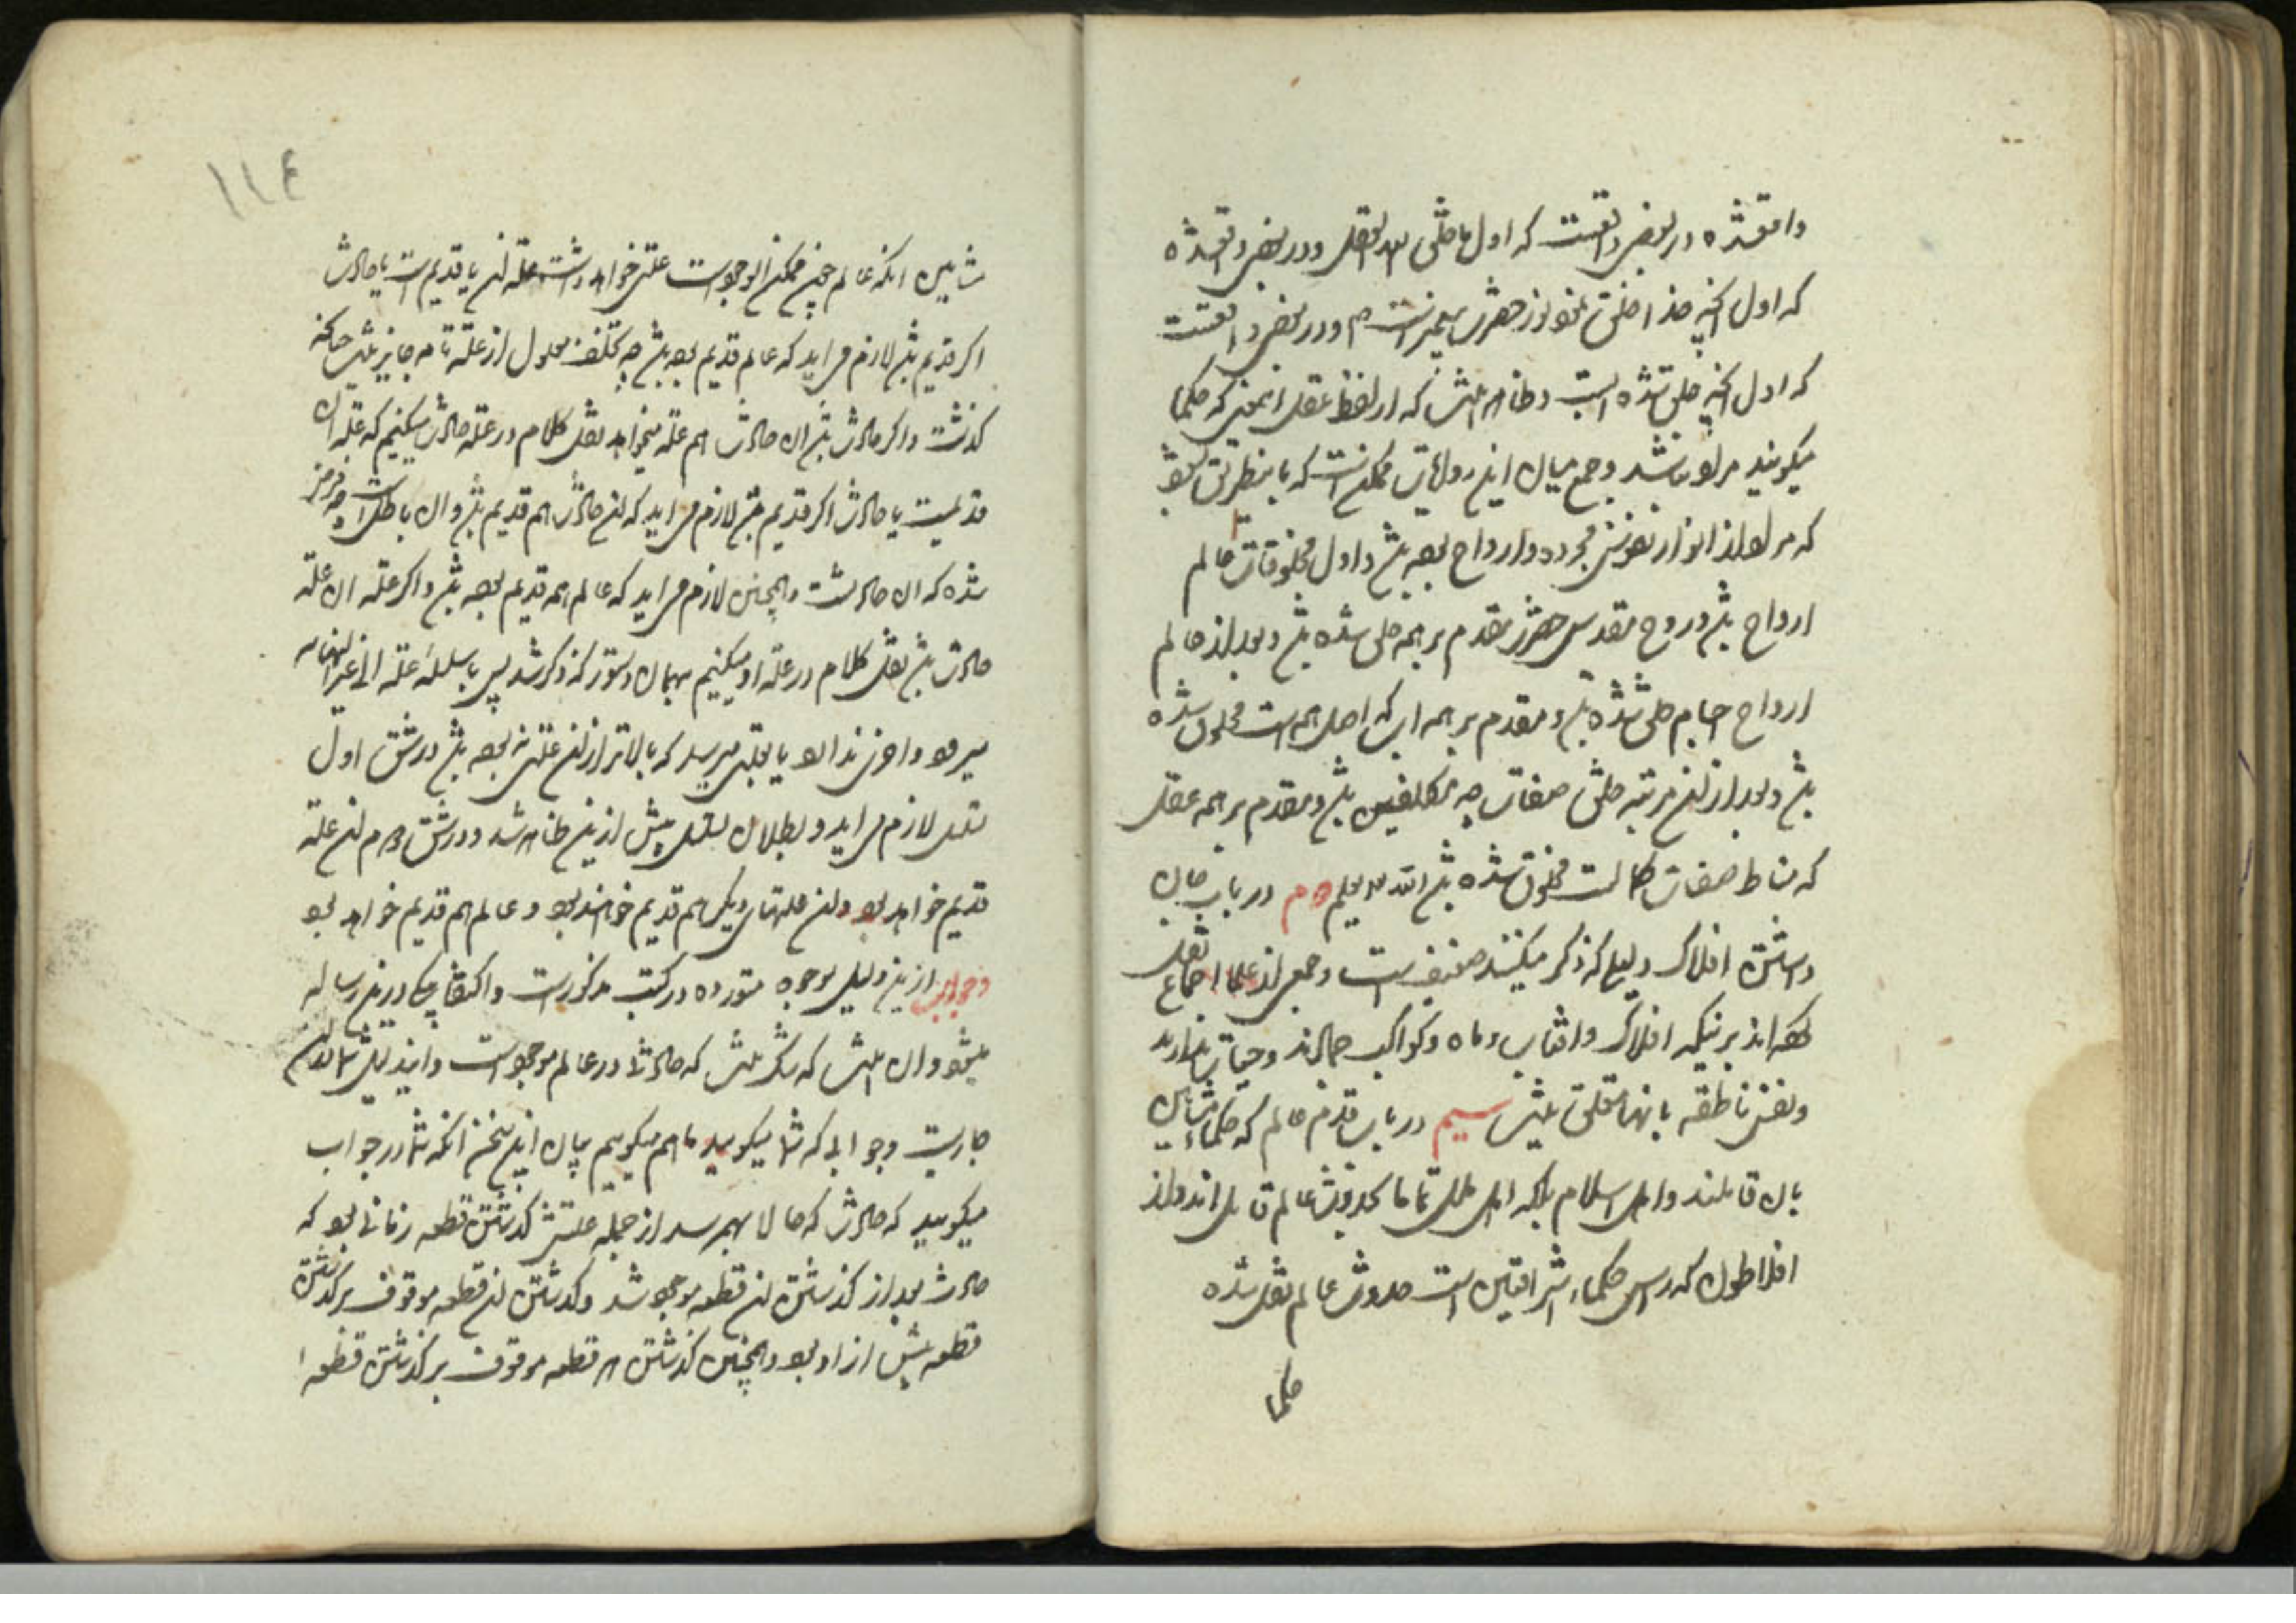 واقعشده در بعضی واقعست که اول ما خلق الله العقل و در بعضی واقعشده
که اول آنچه خدا خلق نمود نور حضرت پیغمبر است ص و در بعضی واقعست
که اول آنچه خلق شده است و ظاهر باشد که از لفظ عقل آنمعنی که حکما
میگویند مراد نباشد و جمع میان این روایات ممکن است که باینطریق شود
که مراد از انوار نفوس مجرده و ارواح بوده باشد و اول مخلوقات عالم
ارواح باشد و روح مقدس حضرت مقدم بر همه خلق شده باشد و بعد از عالم
ارواح اجسام خلق شده باشد و مقدم بر همه آب که اصل همه است مخلوق شده
باشد و بعد از آن مرتبه خلق صفات چه مکلفین باشد و مقدم بر همه عقل
که مناط صفات کمالست مخلوق شده باشد الله یعلم دوم در باب جان
داشتن افلاک دلیلی که ذکر میکنند ضعیف است و جمعی از علما اجماع نقل
کرده‌اند بر اینکه افلاک و آفتاب و ماه و کواکب جمادند و حیات ندارند
و نفس ناطقه بانها متعلق نیست سیم در باب قدم عالم که حکماء مشایین
بان قایلند و اهل اسلام بلکه اهل ملل تماما بحدوث عالم قایل‌اند و از
افلاطون که رئیس حکماء اشراقیین است حدوث عالم نقل شده
حکما
۱۱۴
مشایین آنکه عالم چون ممکن الوجود است علتی خواهد داشت علة آن یا قدیم است یا حادث
اگر قدیم باشد لازم می‌آید که عالم قدیم بوده باشد چه تخلف معلول از علة تامه جایز نیست چنانکه
گذشت و اگر حادث باشد آن حادث هم علة میخواهد نقل کلام در علة حادث میکنیم که علة آن
قدیمست یا حادث اگر قدیم باشد لازم می‌آید که آن حادث هم قدیم باشد و آن باطل است چه فرض
شده که آن حادثست و همچنین لازم می‌آید که عالم هم قدیم بوده باشد و اگر علة آن علة
حادث باشد نقل کلام در علة او میکنیم بهمان دستور که ذکر شد پس یا سلسله علة الی غیر النهایه
میرود و آخر ندارد یا بعلتی میرسد که بالاتر از آن علتی نبوده باشد در شق اول
تسلسل لازم می‌آید و بطلان تسلسل پیش ازین ظاهر شد و در شق دوم آن علة
قدیم خواهد بود و آن علتهای دیگر هم قدیم خواهند بود و عالم هم قدیم خواهد بود
و جواب ازین دلیل بوجوه متعدده در کتب مذکور است و اکتفا بیکی درین رساله
میشود و آن اینست که شک نیست که حادث در عالم موجود است و این دلیل شما در آن
جاریست و جوابی که شما میگویید ما هم میگوییم بیان این سخن آنکه شما در جواب
میگویید که حادث که حالا بهم رسد از جمله علتش گذشتن قطعه زمانی بود که
حادث بعد از گذشتن آن قطعه موجود شد و گذشتن آن قطعه موقوف بر گذشتن
قطعه پیش از او بود و همچنین گذشتن هر قطعه موقوف بر گذشتن قطعه